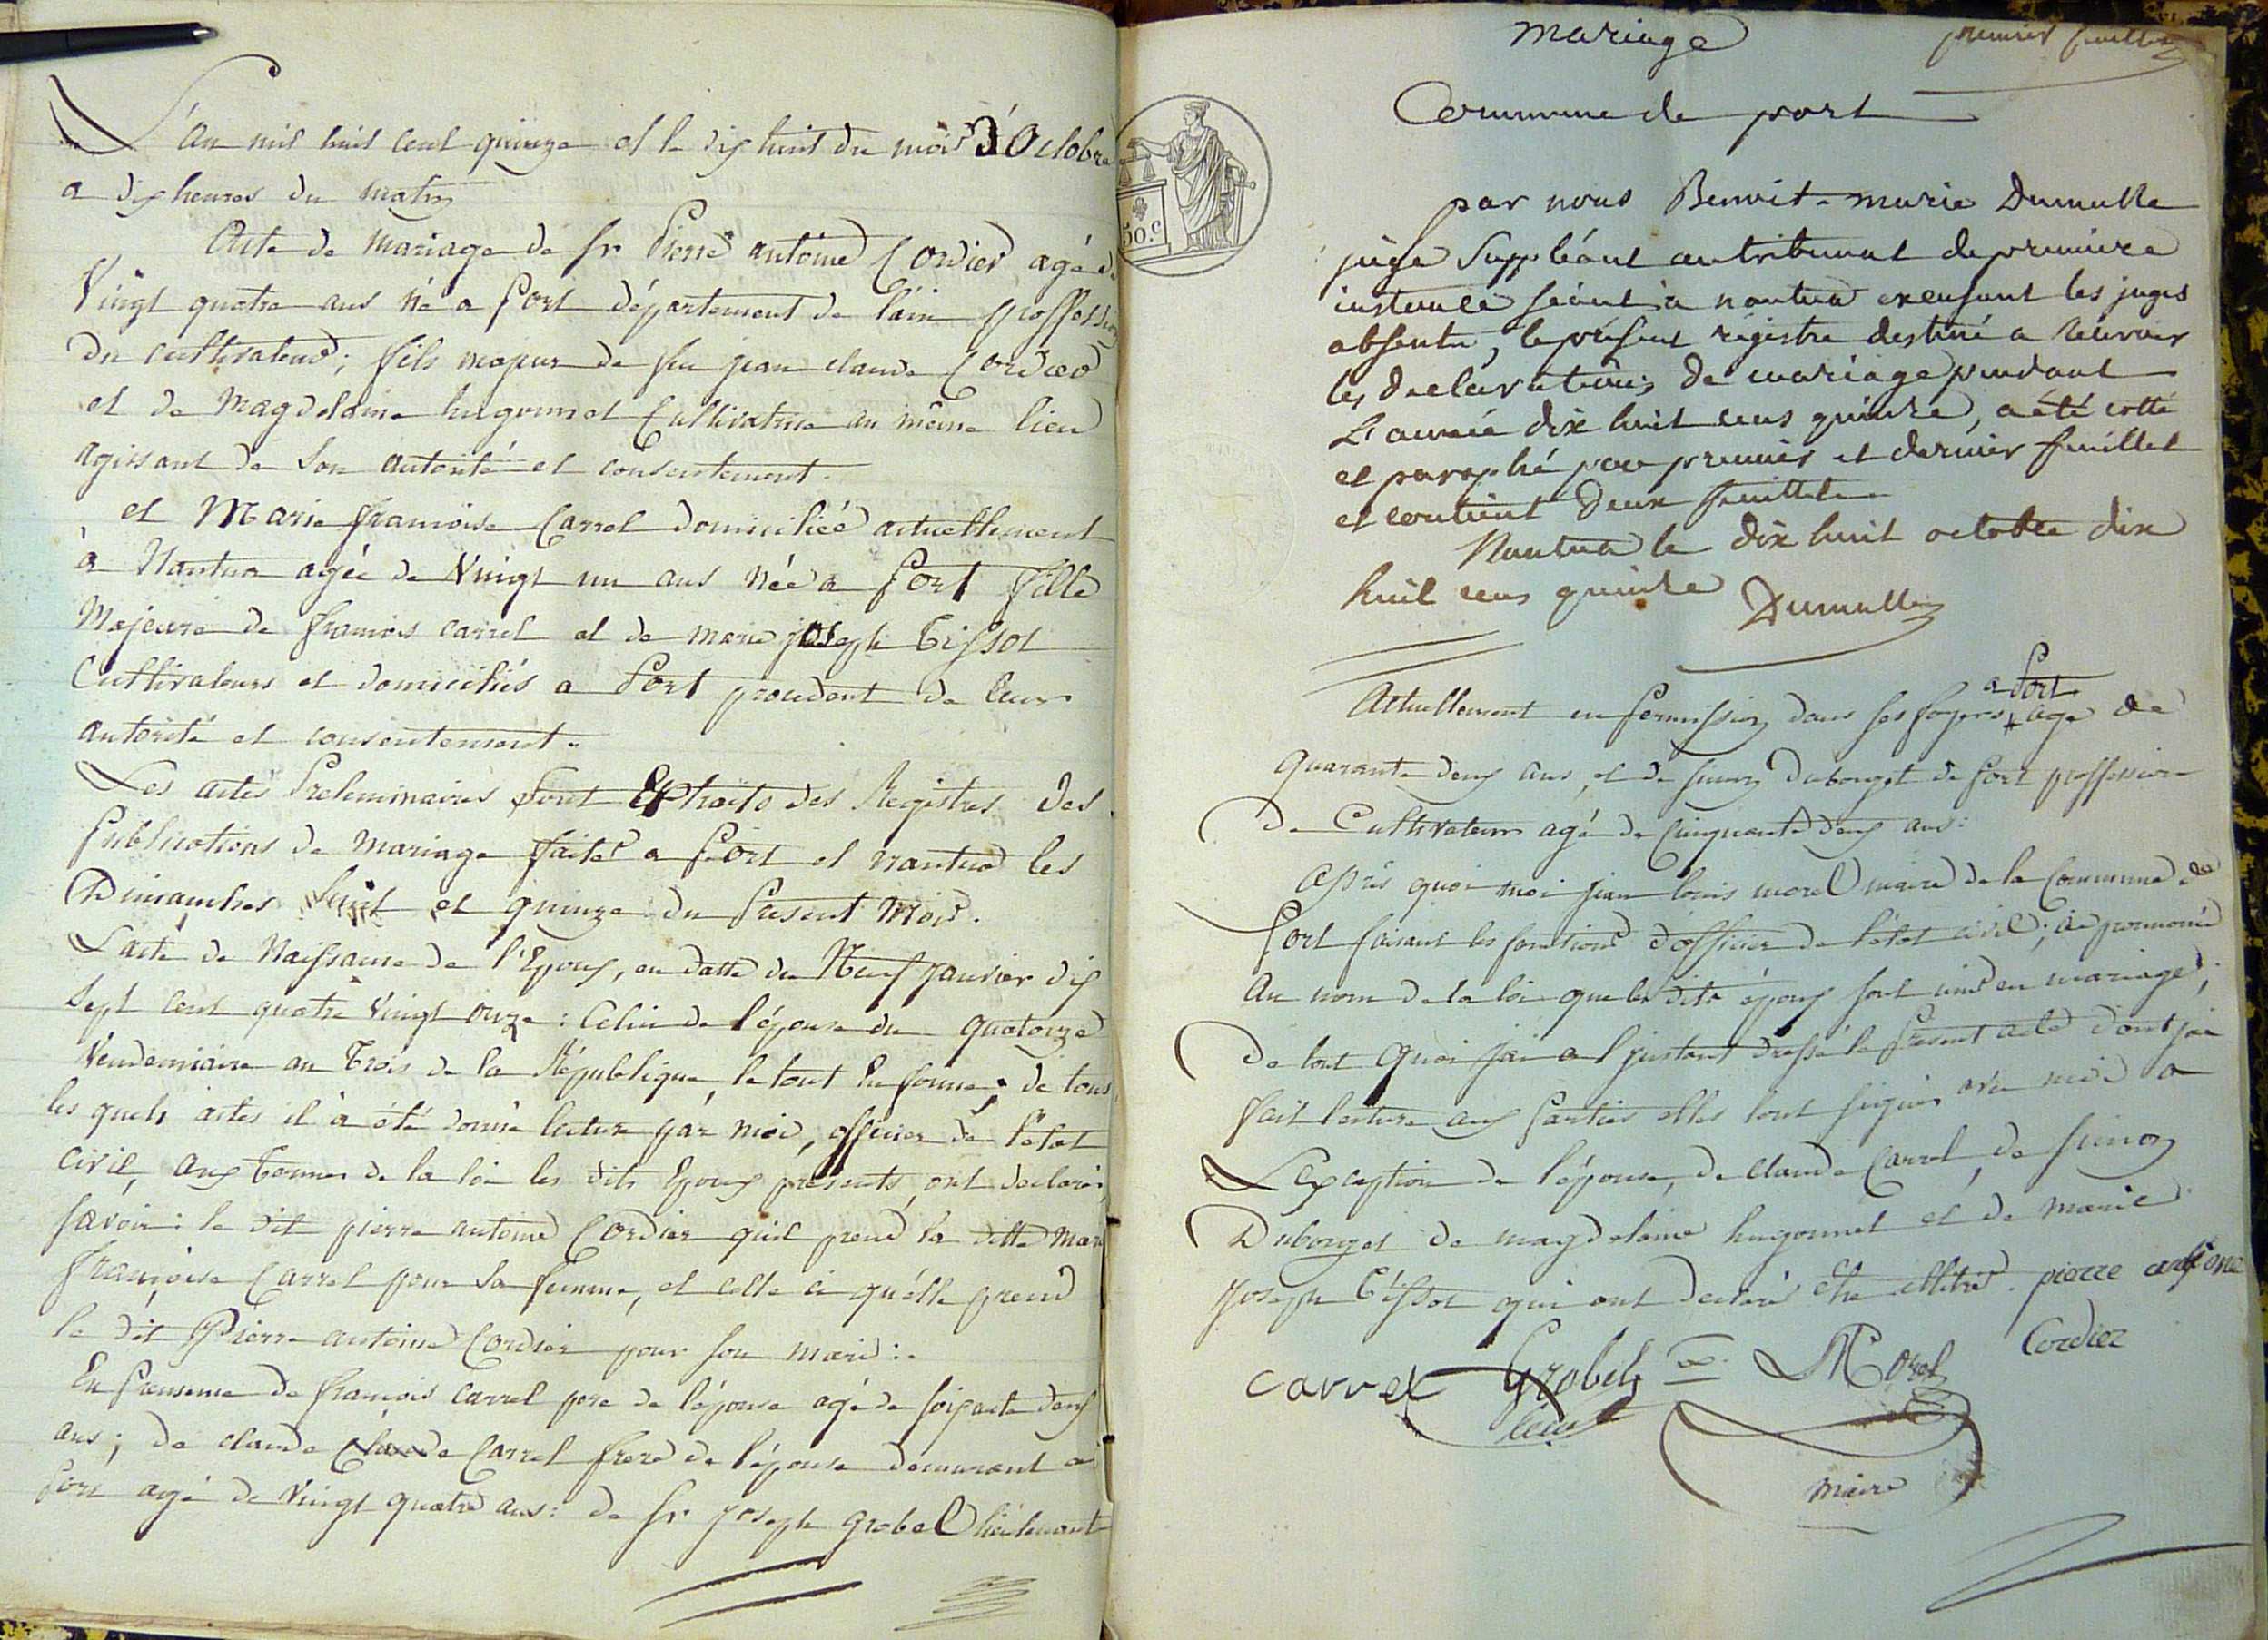 L'an mil huit cent quinze et le dix huit du mois d'Octobre
a dix heures du matin
Acte de mariage de sr Pierre antoine Cordier agé de
Vingt quatre ans né a Port département de l'ain proffession
du cultivateur; fils majeur de feu jean claude Cordier
et de Magdelaine hugonnet Cultivatrice au même lieu
agissant de son autorité et consentement.
et Marie françoise Carrel domiciliée actuellement
à Nantua agée de Vingt un ans née a Port fille
Majeure de françois carrel et de marie joseph Tissot
Cultivateurs et domiciliés a Port procedent de leur
autorité et consentement.
Les actes Preleminaires sont Extraits des Registres des
Publications de mariage faites a Port et nantua les
Dimanches huit et quinze du Present Mois.
L'acte de Naissance de l'Epoux, en datte du Neuf janvier dix
sept cent quatre Vingt onze: Celui de l'épouse du quatorze
Vendemiaire an Trois de la République, le tout En forme; de tous
les quels actes il à été donné lecture par moi, officier de l'état
civil, aux termes de la loi les dits Epoux présents, ont declarés,
savoir: le dit pierre antoine Cordier quil prend la ditte Marie
françoise Carrel pour sa femme, et celle ci qu'elle prend
le dit Pierre antoine Cordier pour son mari:.
En Presence de françois carrel pere de l'épouse agé de soixante deux
ans; de claude claude Carrel frere de l'épouse demeurant a
Port agé de Vingt quatre ans: de sr joseph grobel lieutenant
mariage
premier feuillet
Commune de port
50.c
par nous Benoit-marie Dumolle
juge Suppléant au tribunal de premiere
instance séant à nantua excusant les juges
absents, le présent régistre destiné a recevoir
les declarations de mariage pendant
L'année dix huit cens quinze, a été cotté
et paraphé par premier et dernier feuillet
et contient deux feuillets
Nantua le dix huit octobre dix
huit cens quinze Dumolle
a Port
Actuellement en Permission dans ses foyers + age de
quarante deux ans, et de simon Dubouget de Port proffession
De Cultivateur agé de Cinquante deux ans:
Après quoi moi jean louis morel maire de la Commune de
Port faisant les fonctions d'officier de l'état civil; ai prononcé
Au nom de la loi que les dits époux sont unis en mariage;
De tout quoi jai a l'jnstant dressé le Present acte dont jai
fait lecture aux Parties elles l'ont signé avec moi a
L'Exception de l'épouse, de claude Carrel, de simon
Dubouget de magdelaine hugonnet et de marie
joseph Tissot qui ont declaré etre illitré. pierre antione
Cordier
Carrel Grobel Morel
lieut
maire